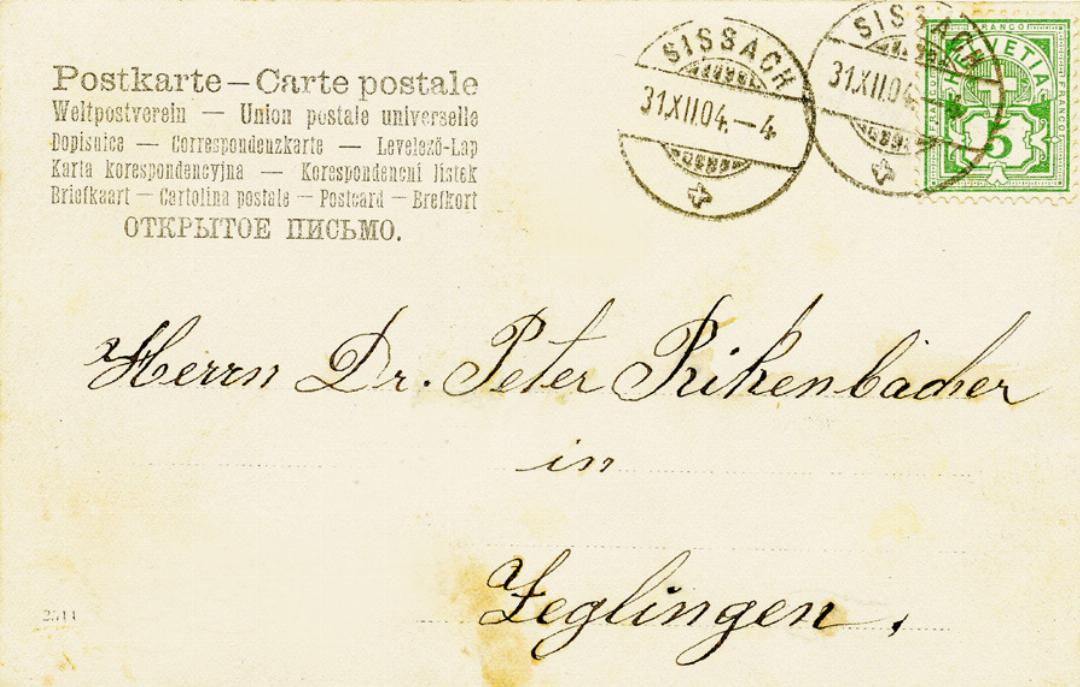 Postkarte – Carte postale
Weltpostverein — Union postale universelle
Dopisnice — Correspondenzkarte — Levelező-Lap
Karta korespondencyjna — Korespondencni listek
Briefkaart – Cartolina postale – Postcard – Brefkort
ОТКРЫТОЕ ПИСЬМО.
SISSACH
31.XII.04.–4
SISSACH
31.XII.04.–4
FRANCO
HELVETIA
FRANCO
FRANCO
5
Herrn Dr. Peter Rikenbacher
in
Zeglingen.